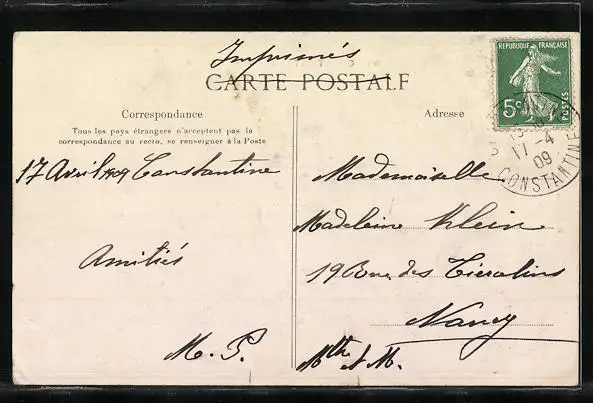 Imprimés
CARTE POSTALE
REPUBLIQUE FRANÇAISE
5c
POSTES
17-4
09
CONSTANTINE
Correspondance
Tous les pays étrangers n'acceptent pas la
correspondance au recto, se renseigner à la Poste
17 Avril 1909 Constantine
Amitiés
M. P.
Adresse
Mademoiselle
Madeleine Klein
19 Rue des Tiercelins
Nancy
Mthe et M.